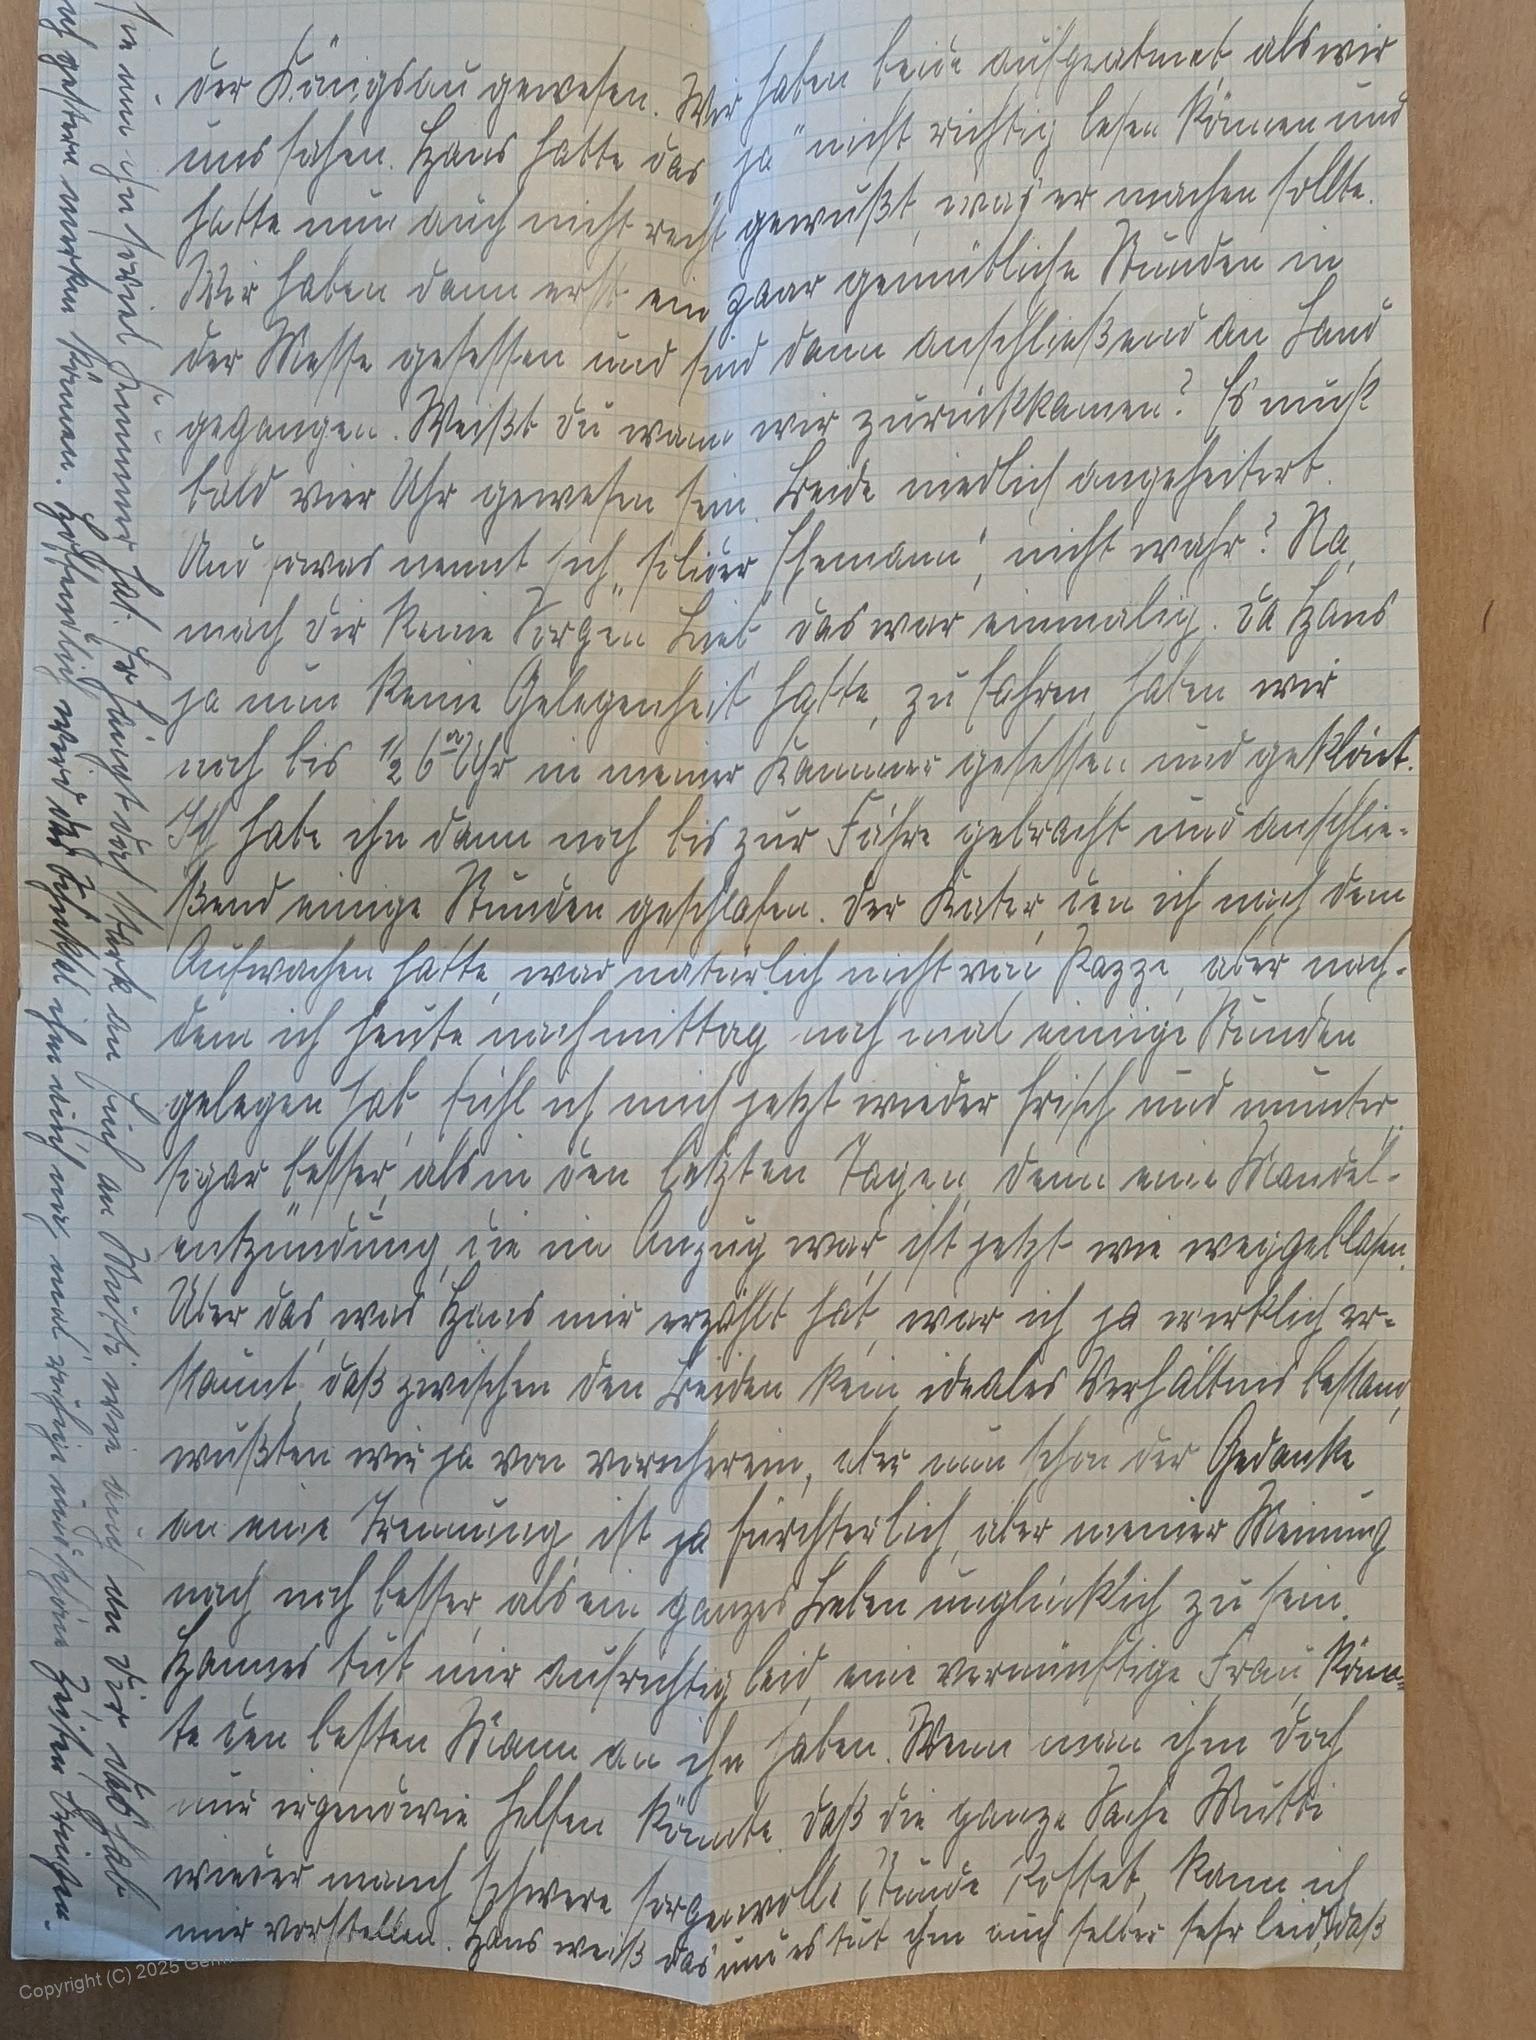 der Königsau gewesen. Wir haben beide aufgeatmet, als wir
uns sahen. Hans hatte das ja "nicht richtig lesen können und
hatte nun auch nicht recht gewußt, was er machen sollte.
Wir haben dann erst ein paar gemütliche Stunden in
der Messe gesessen und sind dann anschließend an Land
gegangen. Weißt du wann wir zurückkamen? Es muß
bald vier Uhr gewesen sein. Beide niedlich angeheitert.
Und sowas nennt sich „solider Ehemann", nicht wahr? Na,
mach dir keine Sorgen Lieb das war einmalig. Da Hans
ja nun keine Gelegenheit hatte, zu fahren, haben wir
noch bis ½ 6 Uhr in meiner Kammer gesessen und geklönt.
Ich habe ihn dann noch bis zur Fähre gebracht und anschlie-
ßend einige Stunden geschlafen. Der Kater, den ich nach dem
Aufwachen hatte, war natürlich nicht von Pappe, aber nach-
dem ich heute nachmittag noch mal einige Stunden
gelegen hab, fühl ich mich jetzt wieder frisch und munter,
sogar besser, als in den letzten Tagen, denn eine Mandel-
entzündung, die im Anzug war, ist jetzt wie weggeblasen.
Über das, was Hans mir erzählt hat, war ich ja wirklich er-
staunt, daß zwischen den Beiden kein ideales Verhältnis bestand,
wußten wir ja von vornherein, aber nun schon der Gedanke
an eine Trennung, ist ja fürchterlich, aber meiner Meinung
nach noch besser, als ein ganzes Leben unglücklich zu sein.
Hannes tut mir aufrichtig leid, eine vernünftige Frau, könn-
te den besten Mann an ihn haben. Wenn man ihm doch
nur irgendwie helfen könnte. Daß die ganze Sache Mutti
wieder manch schwere sorgenvolle Stunde kostet, kann ich
mir vorstellen. Hans weiß das und es tut ihm auch selber sehr leid, daß
sie nun schon soviel Kummer hat. Er hängt doch stark an Euch, an Mutti wie auch an dir, das hab
ich gestern merken können. Hoffentlich wird das Schicksal ihm auch noch mal ruhige und schöne Zeiten bringen.
Copyright (C) 2025